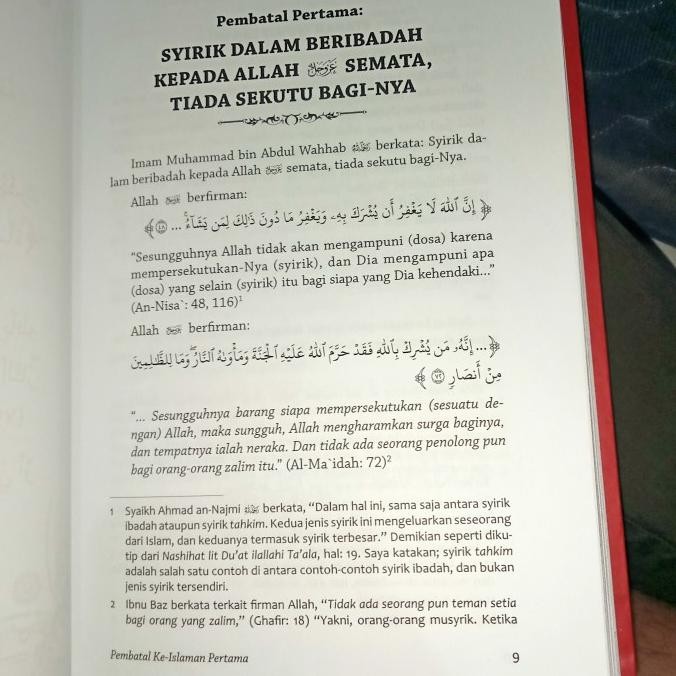 Pembatal Pertama:
SYIRIK DALAM BERIBADAH
KEPADA ALLAH ﷻ SEMATA,
TIADA SEKUTU BAGI-NYA
Imam Muhammad bin Abdul Wahhab berkata: Syirik da-
lam beribadah kepada Allah semata, tiada sekutu bagi-Nya.
Allah berfirman:
﴿ إِنَّ ٱللَّهَ لَا يَغْفِرُ أَن يُشْرَكَ بِهِۦ وَيَغْفِرُ مَا دُونَ ذَٰلِكَ لِمَن يَشَآءُۚ ... ٤٨ ﴾
“Sesungguhnya Allah tidak akan mengampuni (dosa) karena
mempersekutukan-Nya (syirik), dan Dia mengampuni apa
(dosa) yang selain (syirik) itu bagi siapa yang Dia kehendaki...”
(An-Nisa`: 48, 116)¹
Allah berfirman:
﴿ ... إِنَّهُۥ مَن يُشْرِكْ بِٱللَّهِ فَقَدْ حَرَّمَ ٱللَّهُ عَلَيْهِ ٱلْجَنَّةَ وَمَأْوَىٰهُ ٱلنَّارُۖ وَمَا لِلظَّٰلِمِينَ
مِنْ أَنصَارٍ ٧٢ ﴾
“... Sesungguhnya barang siapa mempersekutukan (sesuatu de-
ngan) Allah, maka sungguh, Allah mengharamkan surga baginya,
dan tempatnya ialah neraka. Dan tidak ada seorang penolong pun
bagi orang-orang zalim itu.” (Al-Ma`idah: 72)²
1 Syaikh Ahmad an-Najmi berkata, “Dalam hal ini, sama saja antara syirik
ibadah ataupun syirik tahkim. Kedua jenis syirik ini mengeluarkan seseorang
dari Islam, dan keduanya termasuk syirik terbesar.” Demikian seperti diku-
tip dari Nashihat lit Du’at ilallahi Ta’ala, hal: 19. Saya katakan; syirik tahkim
adalah salah satu contoh di antara contoh-contoh syirik ibadah, dan bukan
jenis syirik tersendiri.
2 Ibnu Baz berkata terkait firman Allah, “Tidak ada seorang pun teman setia
bagi orang yang zalim,” (Ghafir: 18) “Yakni, orang-orang musyrik. Ketika
Pembatal Ke-Islaman Pertama 9